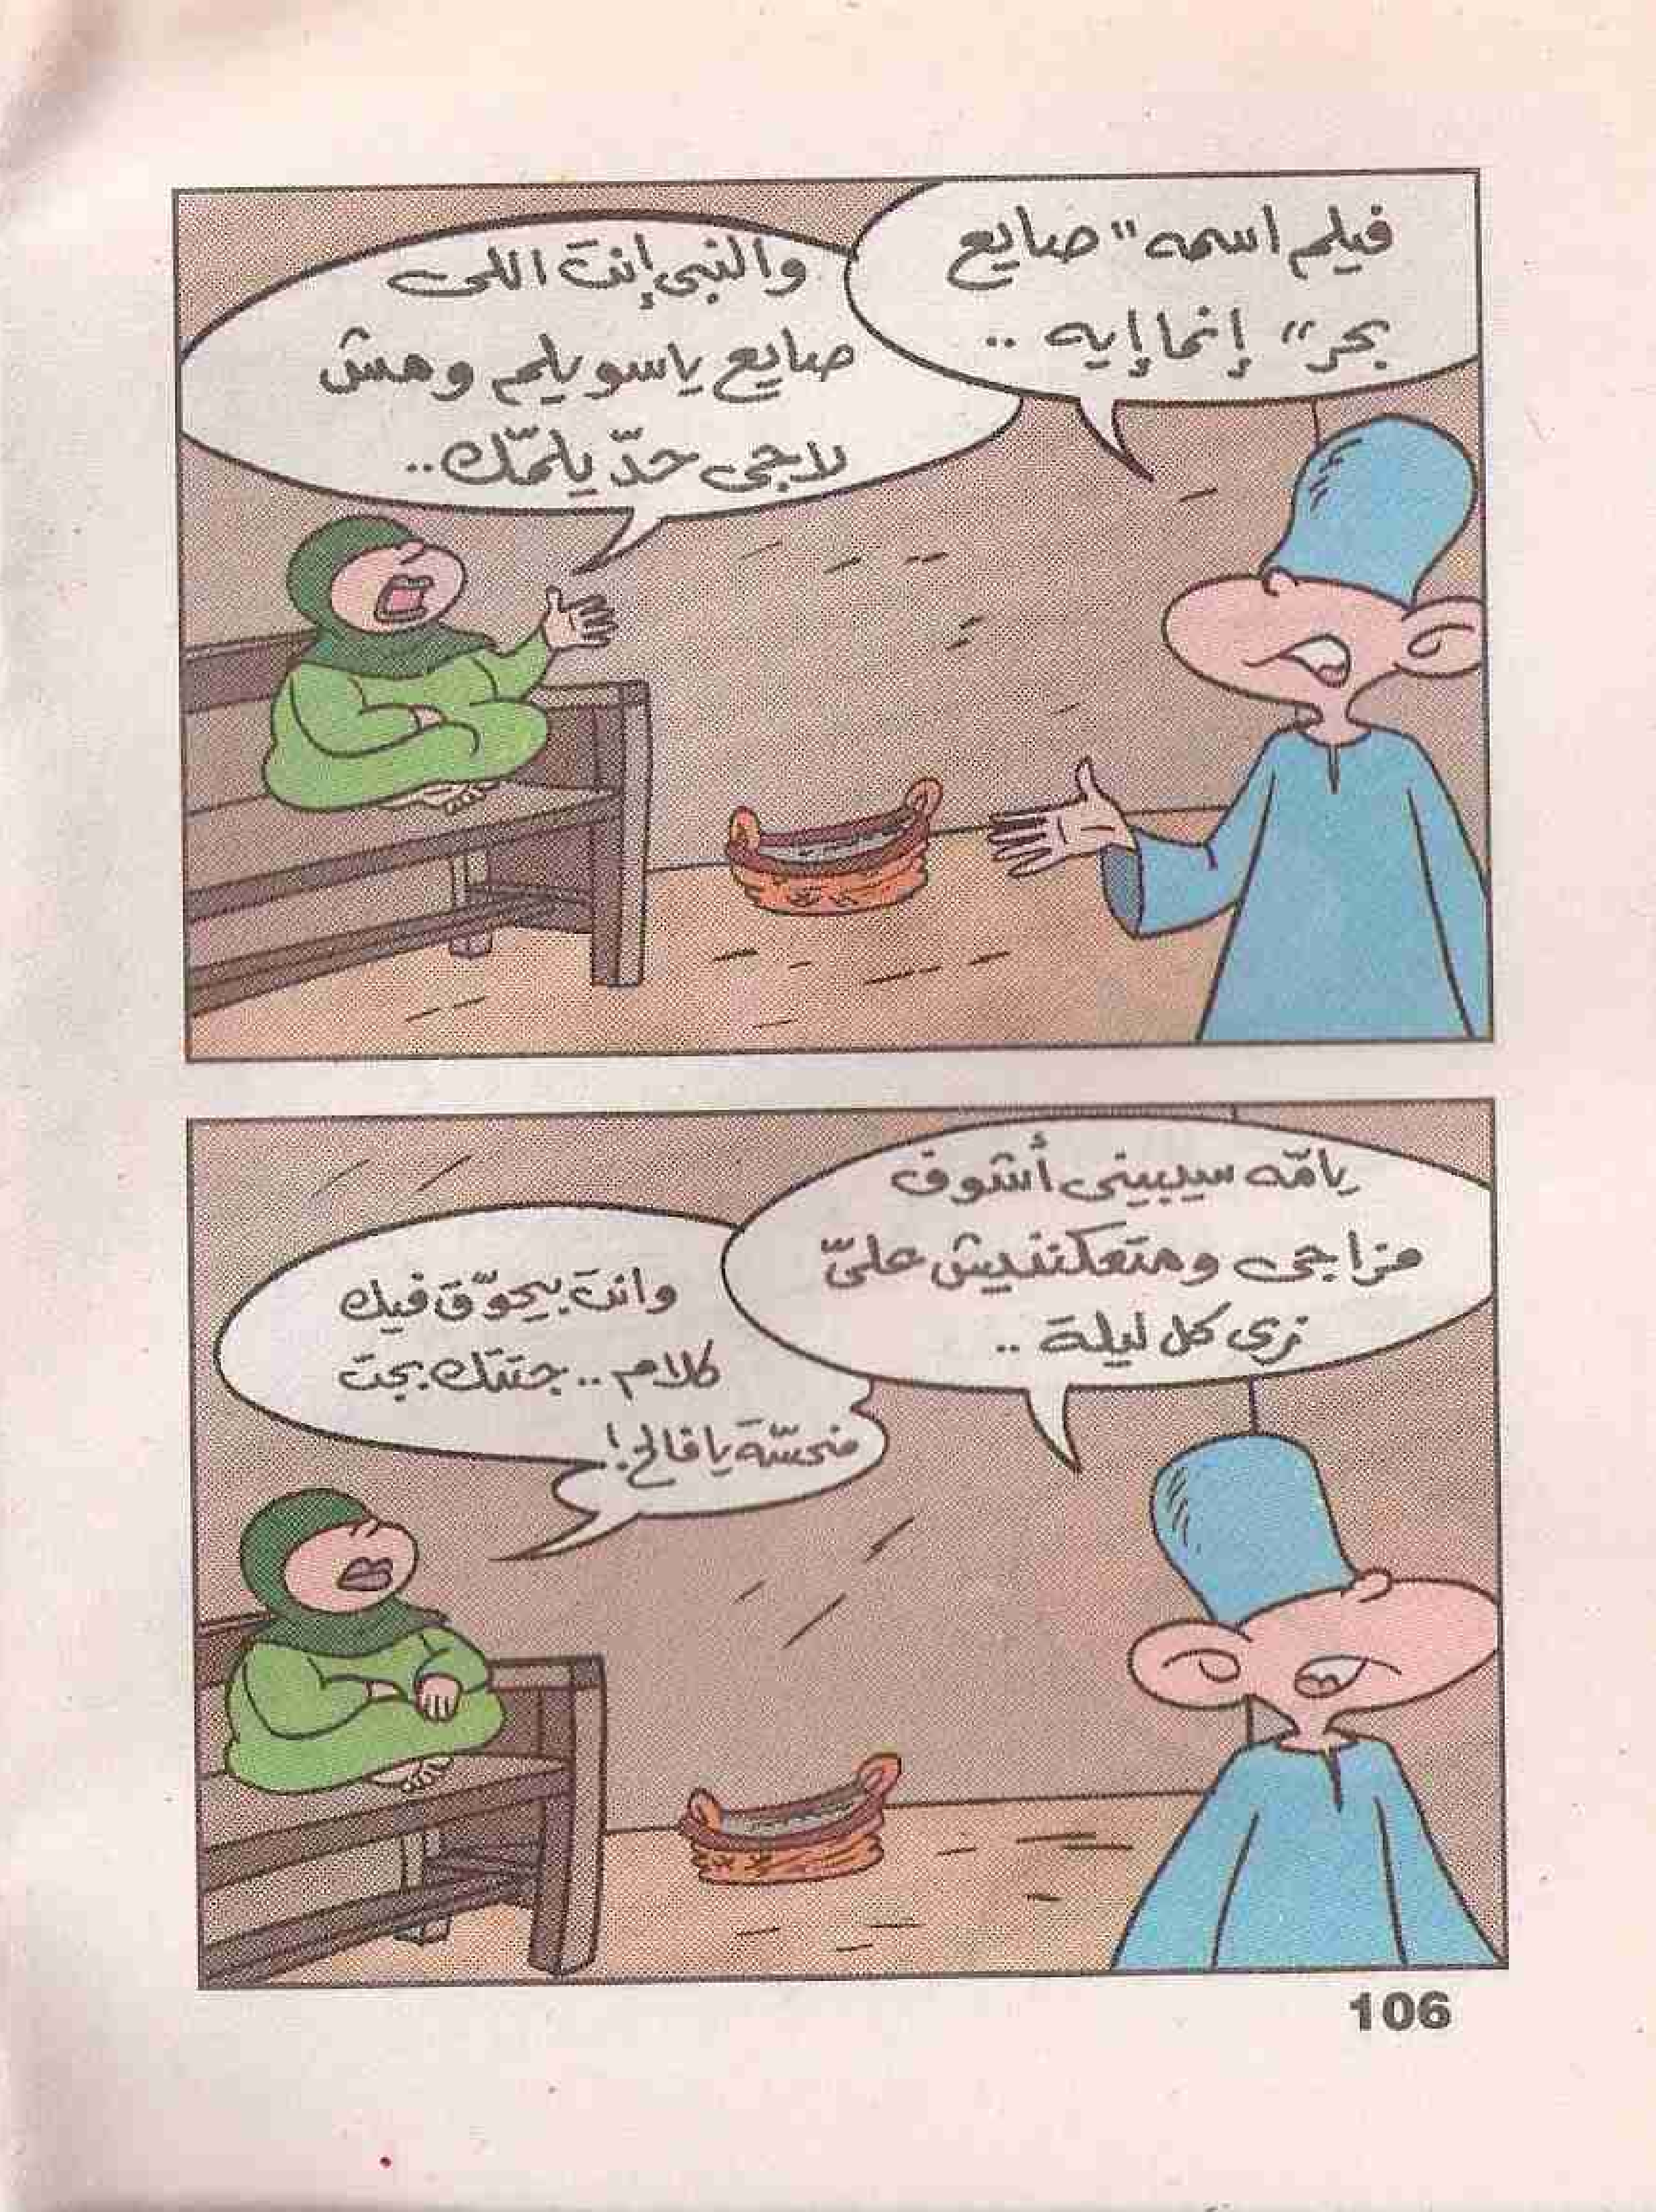 فيلم اسمه "صايع
بحر" إنما إيه ..
والنبى إنت اللى
صايع يا سويلم ومش
لاجى حدّ يلمّك..
يامّه سيبينى أشوف
مزاجى ومتعكننيش علىّ
زى كل ليلة ..
وانت بيحوّق فيك
كلام .. جتتك بجت
منحسّة يا فالح!
106